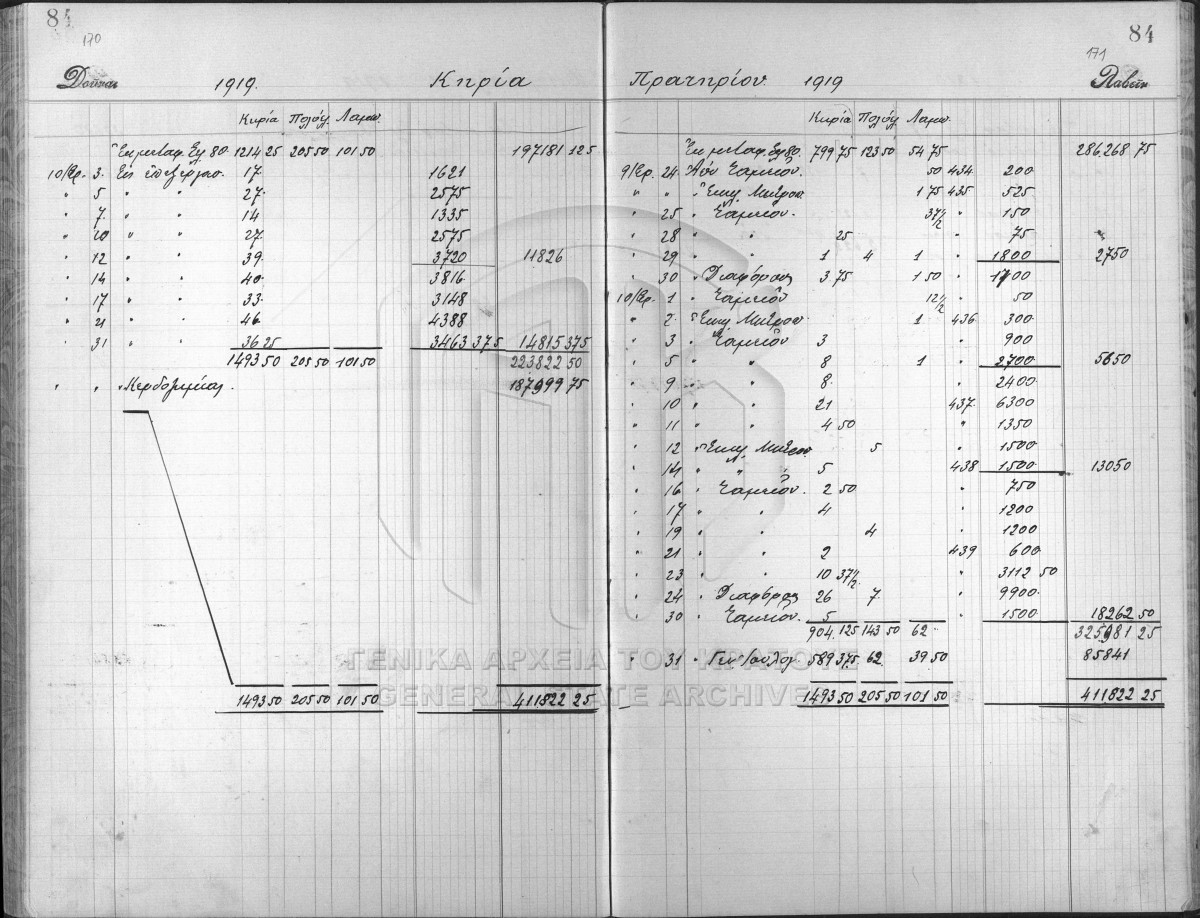 84
170
Δοῦναι 1919. Κηρία
Κηρία Πολύελ. Λαμπ.
Ἐκ μεταφ. Σελ 80 1214 25 205 50 101 50 197181 125
10/βρ. 3. Ἐξ ἐπεξεργασ. 17. 1621
" 5 " " 27. 2575
" 7. " " 14 1335
" 10 " " 27. 2575
" 12 " " 39. 3720 11826
" 14 " " 40. 3816.
" 17 " " 33. 3148
" 21 " " 46. 4388
" 31 " " 36 25 3463 375 14815 375
1493 50 205 50 101 50 223822 50
" " " Κερδοζημίας. 187999 75
1493 50 205 50 101 50 411822 25
84
171
Πρατηρίου 1919 Λαβεῖν
Κηρία Πολύελ. Λαμπ.
Ἐκ μεταφ. Σελ 80. 799 75 123 50 54 75 286.268 75
9/βρ. 24 Ἀπὸ Ταμεῖον. 50 434 200
" " " Ἐκκλ. Μητροπ. 1 75 435 525
" 25 " Ταμεῖον. 37 1/2 " 150
" 28 " " 25 " 75
" 29 " " 1 4 1 " 1800 2750
" 30 " Διαφόρους 3 75 1 50 " 1700
10/βρ. 1 " Ταμεῖον 12 1/2 " 50
" 2 " Ἐκκλ. Μητροπ. 1 436 300
" 3 " Ταμεῖον 3 " 900
" 5 " " 8 1 " 2700 5650
" 9 " " 8. " 2400
" 10 " " 21 437. 6300
" 11 " " 4 50 " 1350
" 12 " Ἐκκλ. Μητροπ. 5 " 1500
" 14 " " 5 438 1500 13050
" 16 " Ταμεῖον. 2 50 " 750
" 17 " " 4 " 1200
" 19 " " 4 " 1200
" 21 " " 2 439 600
" 23 " " 10 37 1/2 " 3112 50
" 24 " Διαφόρους 26 7. " 9900.
" 30 " Ταμεῖον. 5 " 1500 18262 50
904. 125 143 50 62 325981 25
" 31 " 589 375 62 39 50 85841
1493 50 205 50 101 50 411822 25
ΓΕΝΙΚΑ ΑΡΧΕΙΑ ΤΟΥ ΚΡΑΤΟΥΣ
GENERAL STATE ARCHIVES